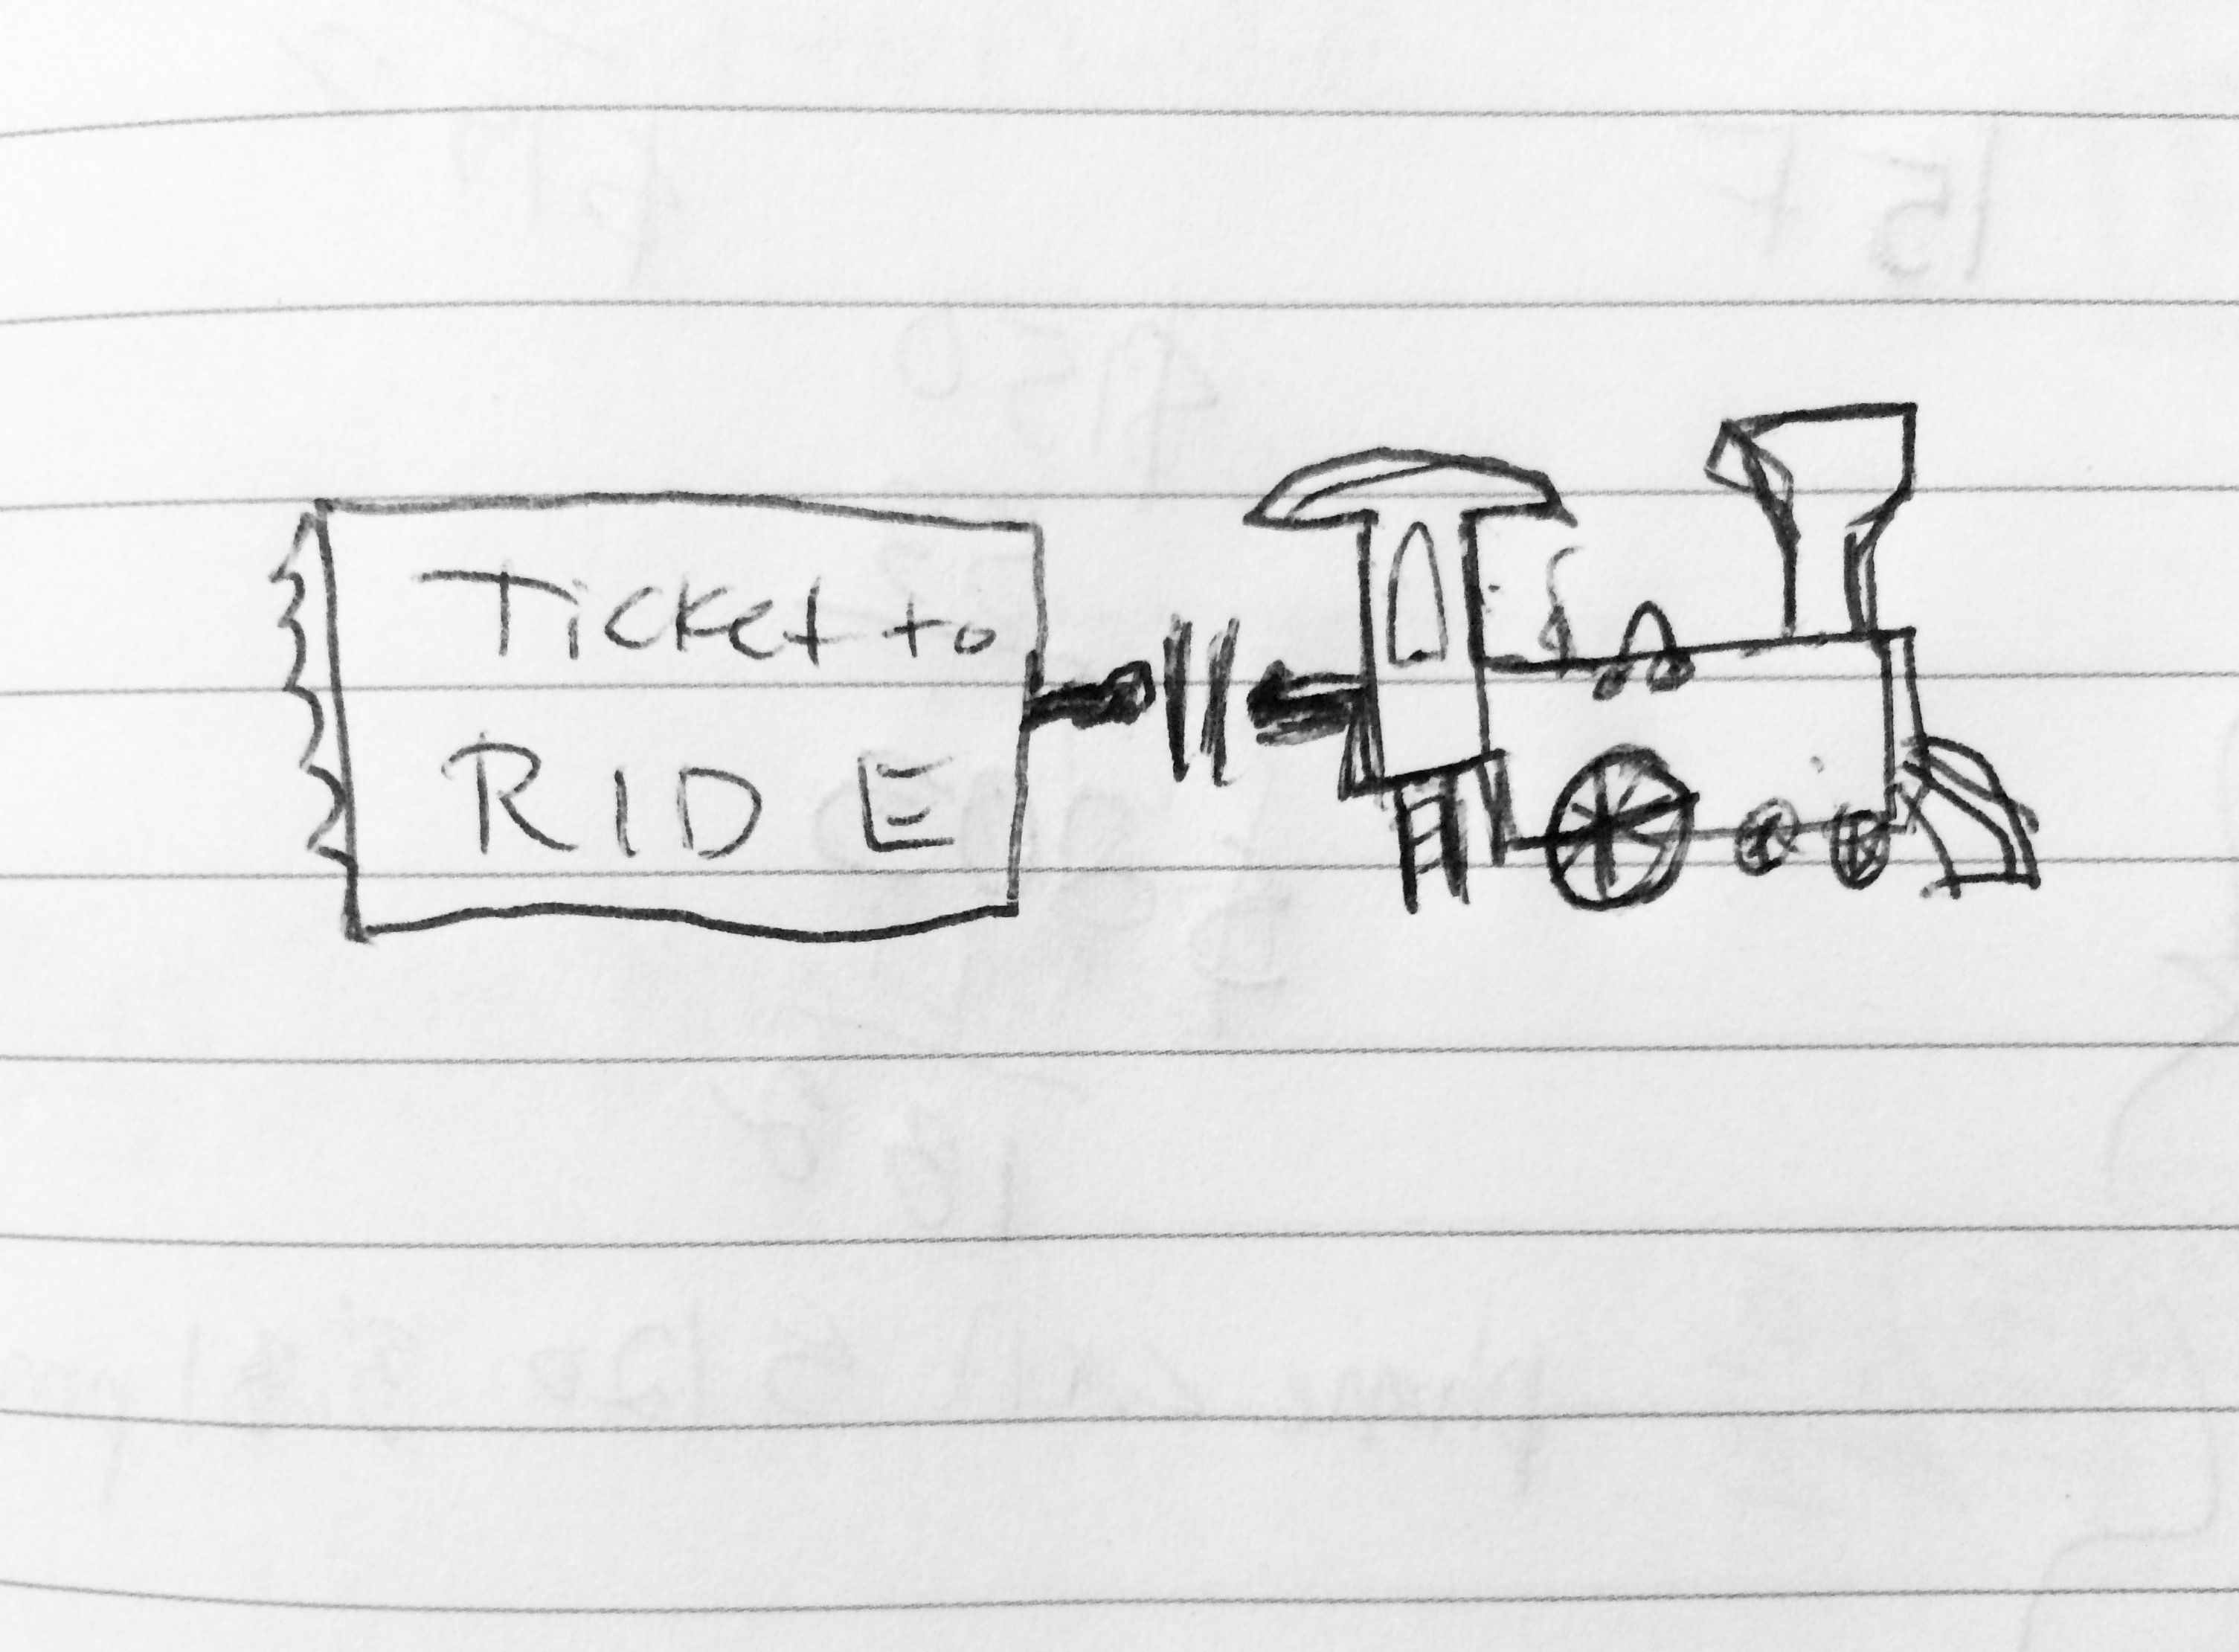 Ticket to
RIDE